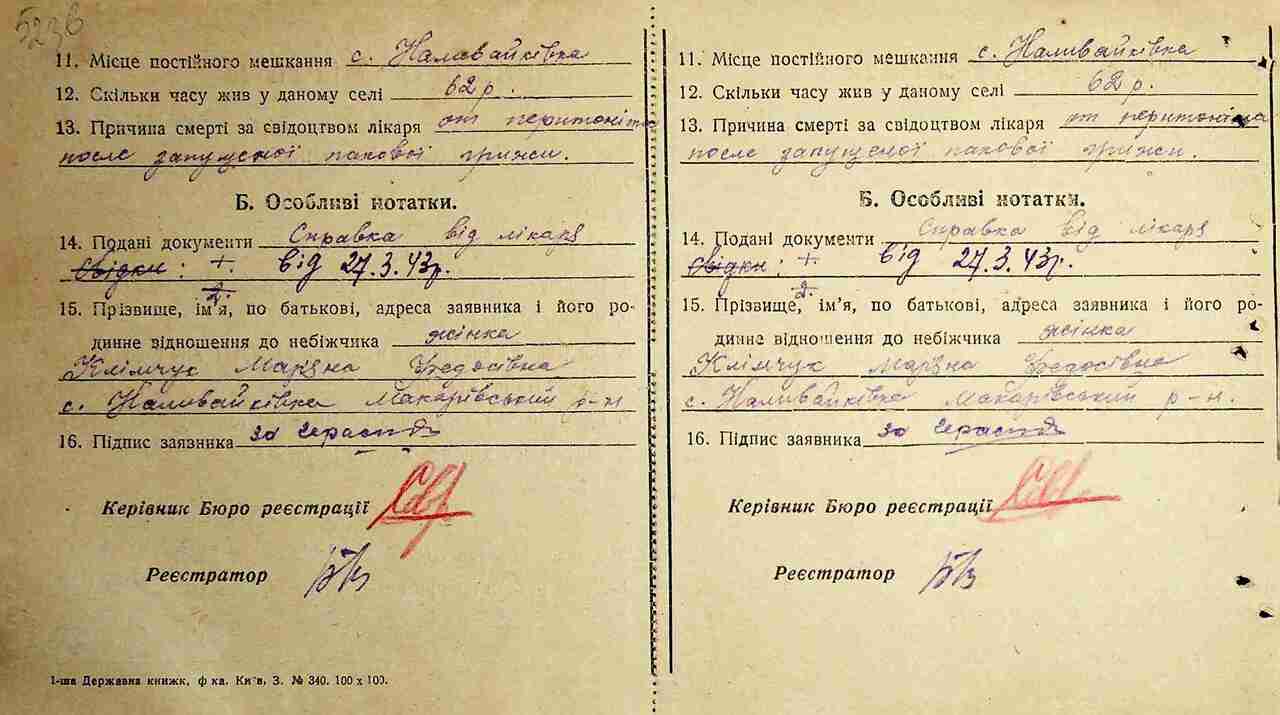 523б
11. Місце постійного мешкання с. Наливайківка
12. Скільки часу жив у даному селі 62 р.
13. Причина смерті за свідоцтвом лікаря от перитоніта
после запущеної пахової грижи.
Б. Особливі нотатки.
14. Подані документи Справка від лікаря
Свідки: +. від 27.3.43р.
2.
15. Прізвище, ім'я, по батькові, адреса заявника і його ро-
динне відношення до небіжчика жінка
Клімчук Мар'яна Федосівна
с. Наливайківка Макарівський р-н
16. Підпис заявника за
Керівник Бюро реєстрації
Реєстратор
1-ша Державна книжк, ф ка. Київ, З. № 340. 100 x 100.
11. Місце постійного мешкання с. Наливайківка
12. Скільки часу жив у даному селі 62 р.
13. Причина смерті за свідоцтвом лікаря от перитоніта
после запущеної пахової грижи.
Б. Особливі нотатки.
14. Подані документи Справка від лікаря
Свідки: +. від 27.3.43р.
2.
15. Прізвище, ім'я, по батькові, адреса заявника і його ро-
динне відношення до небіжчика жінка
Клімчук Мар'яна Федосівна
с. Наливайківка Макарівський р-н.
16. Підпис заявника за
Керівник Бюро реєстрації
Реєстратор